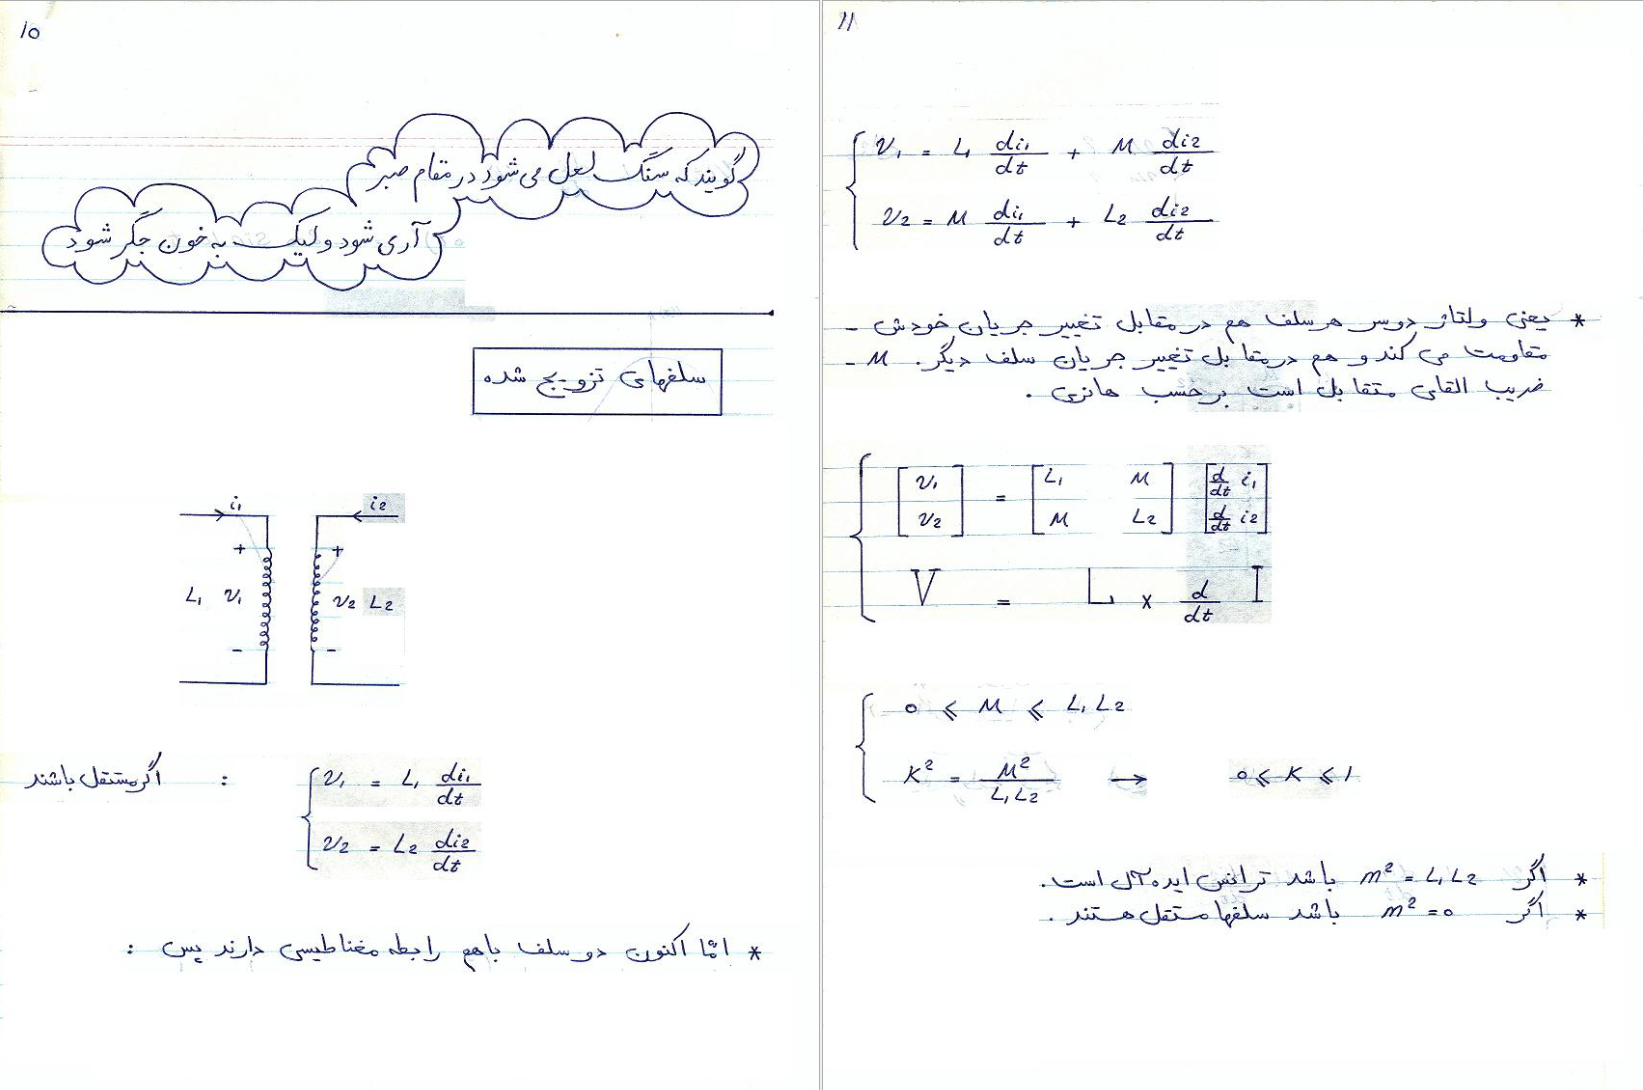 10
گویند که سنگ لعل می شود در مقام صبر
آری شود ولیک به خون جگر شود
سلفهای تزویج شده
i₁ i₂
+ +
L₁ v₁ v₂ L₂
- -
اگر مستقل باشند : v₁ = L₁ di₁/dt
v₂ = L₂ di₂/dt
* امّا اکنون دو سلف باهم رابطه مغناطیسی دارند پس :
11
v₁ = L₁ di₁/dt + M di₂/dt
v₂ = M di₁/dt + L₂ di₂/dt
* یعنی ولتاژ دوسر هر سلف هم در مقابل تغییر جریان خودش -
مقاومت می کند و هم در مقابل تغییر جریان سلف دیگر. M -
ضریب القای متقابل است برحسب هانری .
[v₁ v₂] = [L₁ M M L₂] [d/dt i₁ d/dt i₂]
V = L × d/dt I
0 ⩽ M ⩽ L₁L₂
K² = M²/L₁L₂ → 0 ⩽ K ⩽ 1
* اگر m² = L₁L₂ باشد ترانس ایده آل است.
* اگر m² = 0 باشد سلفها مستقل هستند .